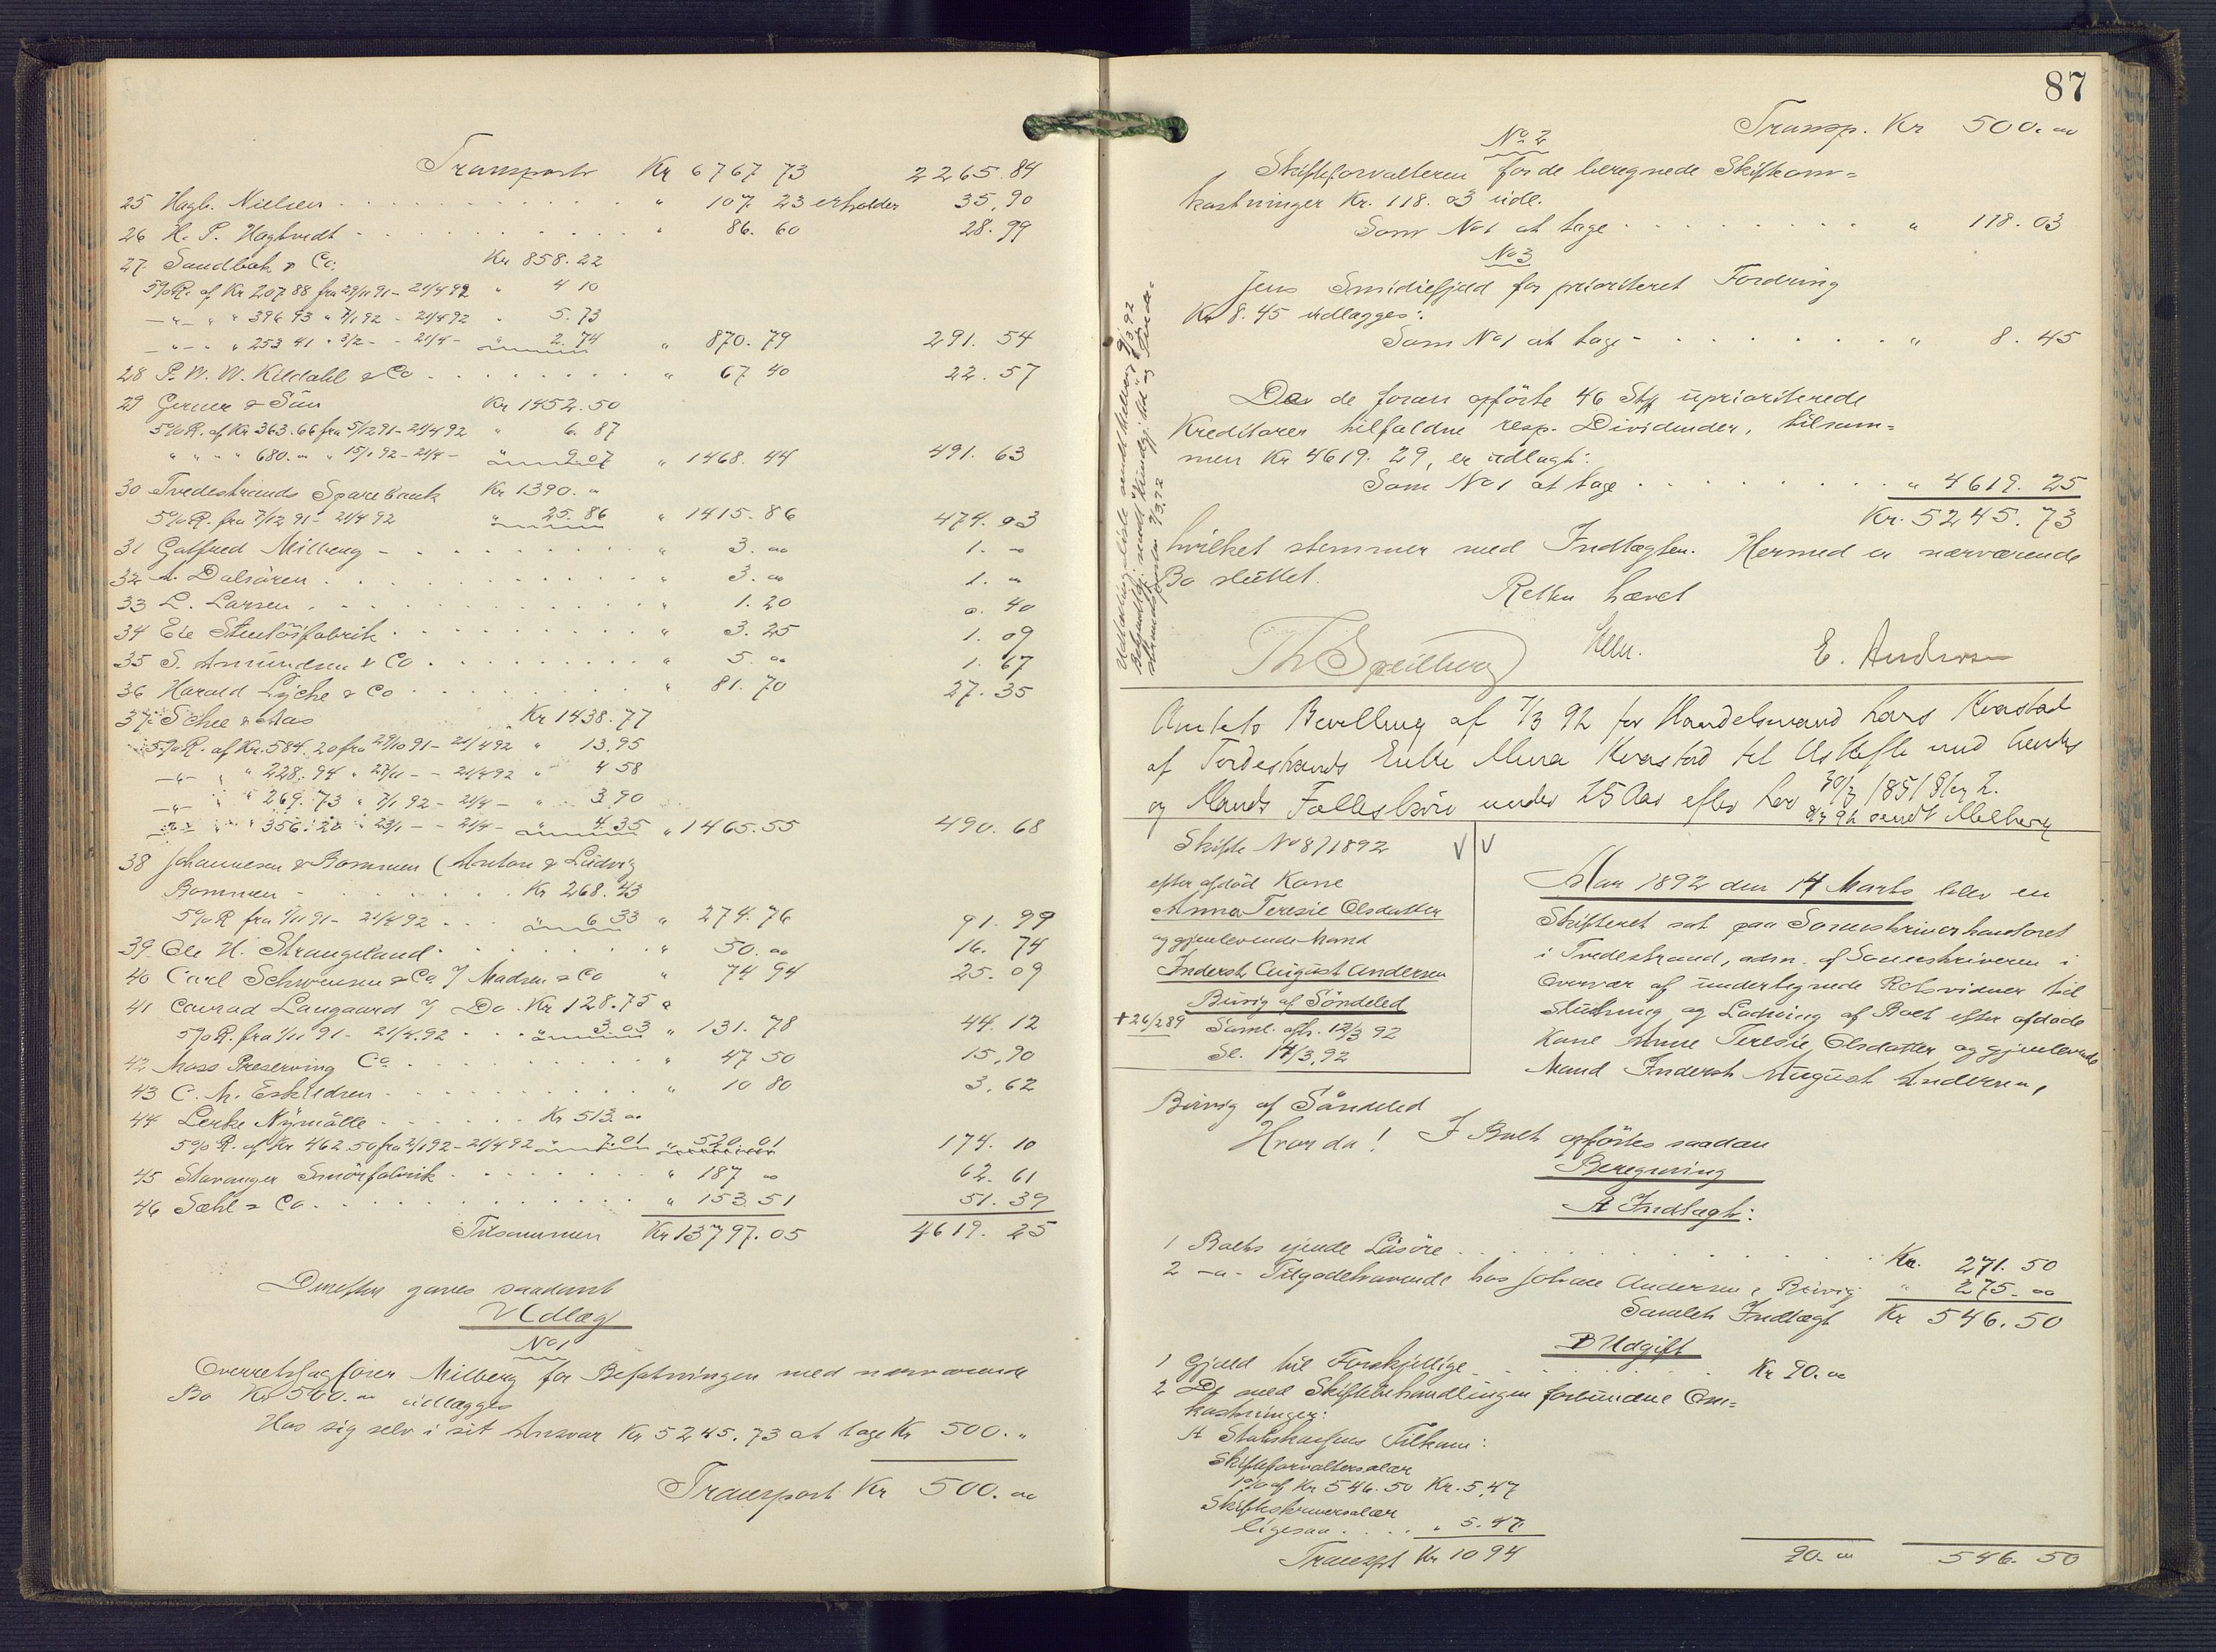 Transport Kr 6767 73 2265.84
25 Hagb. Nielsen " 107. 23 erholder 35,90
26 H. P. Hagtvedt " 86. 60 28.99
27 Sundbak & Co: Kr 858.22
5% R. af Kr 207 88 fra 29/11 91 - 21/4 92 " 4 10
-"- " " 396 93 " 7/1 92 - 21/4 92 " 5.73
-"- " " 253 41 " 3/2 - - 21/4 - " 2.74 " 870.79 291.54
28 P. W. W. Kildahl & Co " 67 40 22.57
29 Gerner & Sün Kr 1452.50
5% R. af Kr 363.66 fra 5/12 91 - 21/4 92 " 6.87
" " " " 680.- " 15/1 92 - 21/4 - " 9.07 " 1468.44 491.63
30 Tvedestrands Sparebank Kr 1390.-
5% R. fra 7/12 91 - 21/4 92 " 25.86 " 1415.86 474.03
31 Gotfred Milberg - " 3.00 1.-
32 A. Dalsören " 3.00 1.-
33 L. Larsen " 1.20 0.40
34 Eie " 3.25 1.09
35 S. Amundsen & Co " 5.00 1.67
36 Harald Lyche & Co " 81.70 27.35
37 Schee & Aas Kr 1438.77
5% R. af Kr. 584.20 fra 29/10 91 - 21/4 92 " 13.95
-"- " " 228.94 " 27/11 - - 21/4 92 " 4 58
-"- " " 269.73 " 7/1 92 - 21/4 - " 3.90
-"- " " 356.20 " 23/1 - - 21/4 - " 4.35 " 1465.55 490.68
38 Johannesen & Bommen (Anton & Ludvig
Bommen - Kr 268.43
5% R fra 1/11 91 - 21/4 92 " 6 33 " 274.76 91.99
39 Ole H. Strangeland " 50.00 16.74
40 Carl Schwensen & Co / Madsen & Co " 74 94 25.09
41 Conrad Langaard / Do. Kr 128.75
5% R. fra 1/11 91 - 21/4.92 " 3.03 " 131.78 44.12
42 Moss Preserving Co " 47 50 15,90
43 C. M. Eskildsen " 10 80 3.62
44 Lerke Nymölle Kr 513.00
5% R. af Kr 462.50 fra 2/1 92 - 21/4 92 " 7.01 " 520.01 174.10
45 Stavanger Smörfabrik " 187 00 62.61
46 Sæhl & Co. " 153.51 51.39
Tilsammen Kr 13797.05 4619.25
Derefter gaves saadant
Udlæg
No 1
Overretssagfører Milberg for Befatningen med nærværende
Bo Kr 500.00 udlægges
Hos sig selv i sit Ansvar Kr 5245.73 at tage Kr 500."
Transport Kr 500.00
87
Transp. Kr 500.00
No 2
Skifteforvalteren for de beregnede Skifteom=
kostninger Kr. 118.03 udl.
Som No 1 at tage " 118.03
No 3
Jens Smidiefjeld for prioriteret Fordring
Kr 8.45 udlægges:
Som No 1 at tage - " 8.45
De de foran opførte 46 Stk upriorterede
Kreditorer tilfaldne resp. Dividender, tilsam=
men Kr 4619.29, er udlagt:
Som No 1 at tage " 4619.25
Kr. 5245.73
hvilket stemmer med Indtægten. Hermed er nærværende
Bo sluttet.
Retten hævet
Th Speilberg E. Andersen
Amtets Bevilling af 7/3 92 for Handelsmand Lars Kvastad
af Tvedestrands Enke Mina Kvastad til Uskifte med hendes
og Mands Fællesbörn under 25 Aar efter Lov 30/7 1851 § 1 og 2.
9/3 92 sendt Milberg
Skifte No 8/1892
efter afdød Kone
Anna Teresie Olsdatter
og gjenlevende Mand
Inderst August Andersen
Buvig af Söndeled
+26/2 89 Saml. afh. 12/3 92
Sl. 14/3.92
Aar 1892 den 14 Marts blev en
Skifteret sat paa Sorenskriverkontoret
i Tvedestrand, adm. af Sorenskriveren i
Overvær af undertegnede Retsvidner til
Slutning og Lodning af Boet efter afdøde
Kone Anne Teresie Olsdatter og gjenlevende
Mand Inderst August Andersen,
Buvig af Söndeled
Hvorda! I Boet opförtes saadan
Beregning
A Indtægt:
1 Boets ejende Lösöre Kr. 271.50
2 -"- Tilgodehavende hos Johan Andersen, Buvig " 275.00
Samlet Indtægt Kr 546.50
B Udgift
1 Gjæld til Forskjellige Kr 90.00
2 De med Skiftebehandlingen forbundne Om=
kostninger:
A Statskassens Tilkom:
Skifteforvaltersalær
1% af Kr 546.50 Kr. 5,47
Skifteskriversalær
ligesaa " 5.47
Transpt Kr 10 94 90.00 546.50